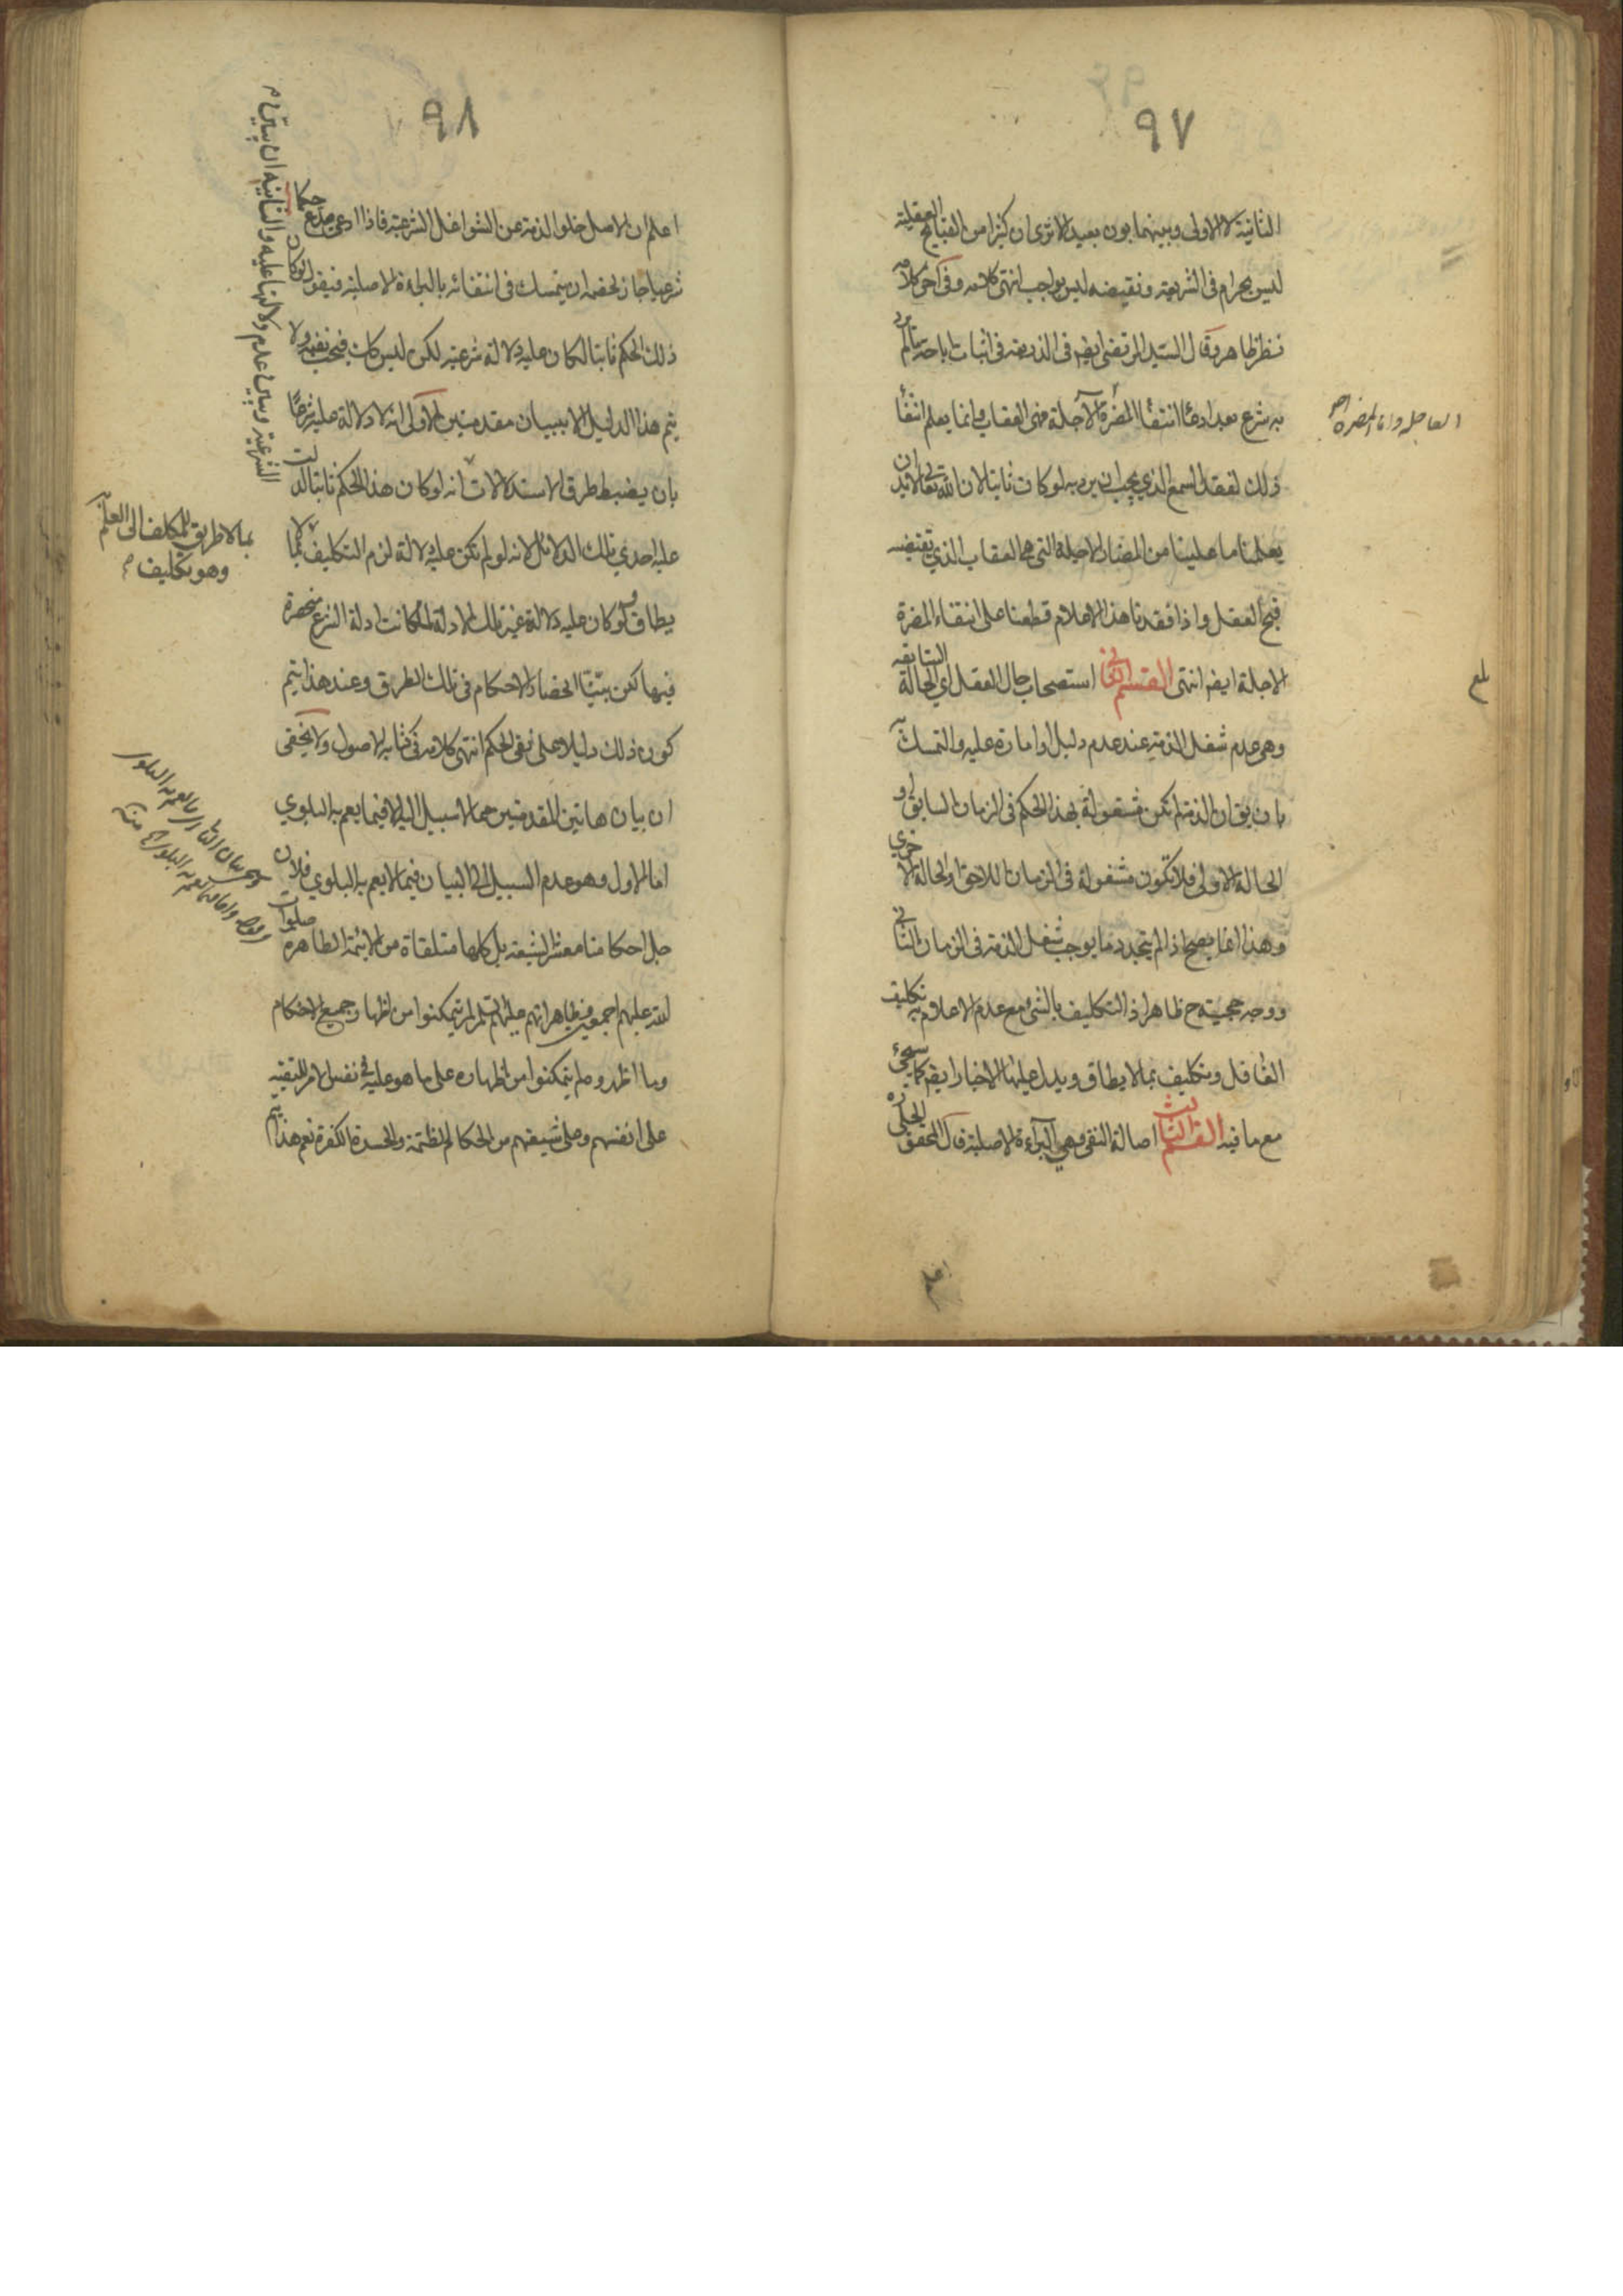 ٩٧
الثانية لا الاولى وبينهما بون بعيد الا ترى ان كثيرا من القبايح العقلية
ليس بحرام فى الشريعة ونقيضه ليس بواجب انتهى كلامه وفى آخر كلامه
نظر ظاهر وقال السيد المرتضى ايضا فى الذريعة فى اثبات اباحة ما لم يرد
به شرع بعد ادعا انتفا المضرة الآجلة فهى العقاب وانما يعلم انتفا
العاجلة واما المضرة
ذلك لفقد السمع الذي يجب ان يرد به لو كان ثابتا لان الله تعالى لا بد ان
يعلمنا ما علينا من المضار الاجلة التى هى العقاب الذي تقتضيه
قبح العقل واذا فقدنا هذا الاعلام قطعنا على انتفاء المضرة
الاجلة ايضا انتهى القسم الثانى استصحاب حال العقل اي الحالة السابقة
بلغ
وهى عدم شغل الذمة عند عدم دليل او امارة عليه والتمسك به
بان يق ان الذمة لم تكن مشغولة بهذا الحكم فى الزمان السابق او
الحالة الاولى فلا تكون مشغولة فى الزمان اللاحق او الحالة الاخري
وهذا انما يصح اذا لم يتجدد ما يوجب شغل الذمة فى الزمان الثانى
ووجه حجيته ح ظاهر اذ التكليف بالشئ مع عدم الاعلام به تكليف
الغافل وتكليف بما لا يطاق ويدل عليها الاخبار ايضا كما سيجئ
مع ما فيه القسم الثالث اصالة النفى وهى البراءة الاصلية قال المحقق الحلى ره
اعلم
٩٨
اعلم ان الاصل خلو الذمة عن الشواغل الشرعية فاذا ادعى مدع حكما
شرعيا جاز لخصمه ان يتمسك فى انتفائه بالبراءة الاصلية فيقول لو كان
ذلك الحكم ثابتا لكان عليه دلالة شرعية لكن ليس كك فيجب نفيه ولا
يتم هذا الدليل الا ببيان مقدمتين الاولى انه لا دلالة عليه شرعا
بان يضبط طرق الاستدلالات الشرعية ويبين عدم دلالتها عليه والثانية ان يبين
انه لو كان هذا الحكم ثابتا لدلت
عليه احدي تلك الدلائل لانه لو لم تكن عليه دلالة لزم التكليف بما لا
بما لا طريق للمكلف الى العلم به
وهو تكليف
يطاق ولو كان عليه دلالة غير تلك الادلة لما كانت ادلة الشرع منحصرة
فيها لكن بينّا انحصار الاحكام فى تلك الطرق وعند هذا يتم
كون ذلك دليلا على نفى الحكم انتهى كلامه فى كتابه الاصول ولا يخفى
ان بيان هاتين المقدمتين مما لا سبيل اليه الا فيما يعم به البلوي
اما الاول وهو عدم السبيل الى البيان فيما لا يعم به البلوي فلان
جل احكامنا معشر الشيعة بل كلها متلقاة من الائمة الطاهرة صلوات
الله عليهم اجمعين وظاهر انهم عليهم السلم لم يتمكنوا من اظهار جميع الاحكام
وما اظهروه لم يتمكنوا من اظهاره على ما هو عليه فى نفس الامر للتقية
على انفسهم وعلى شيعتهم من الحكام الظلمة والحسدة الكفرة نعم هذا يتم